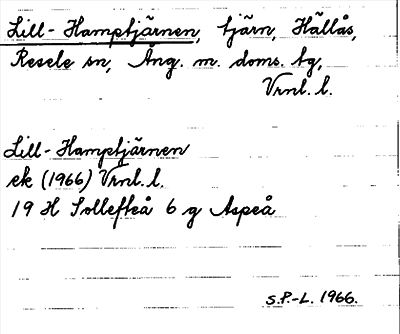 Lill-Hamptjärnen, tjärn, Hällås,
Resele sn, Ång. m. doms. tg,
Vrnl. l.
Lill-Hamptjärnen
ek (1966) Vrnl. l.
19 H Sollefteå 6 g Aspeå
S.P.-L. 1966.